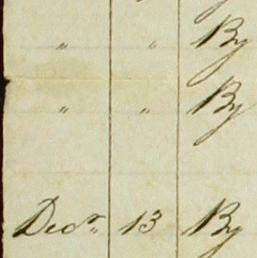 „ „ By
„ „ By
Decr. 13 By